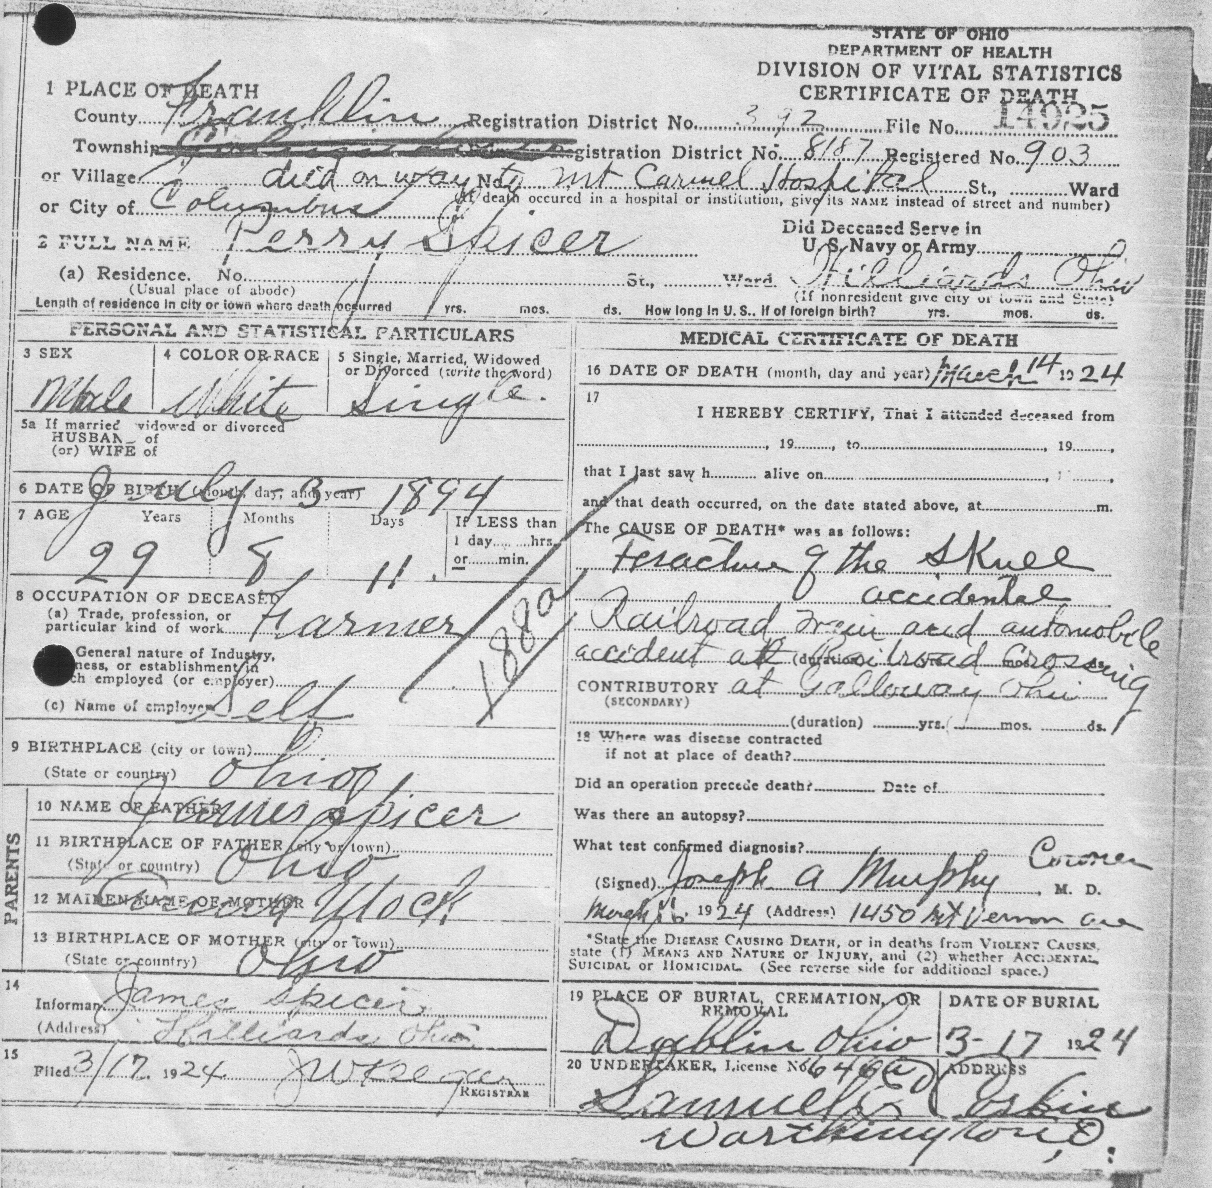 STATE OF OHIO
DEPARTMENT OF HEALTH
DIVISION OF VITAL STATISTICS
CERTIFICATE OF DEATH
1 PLACE OF DEATH
County Franklin Registration District No. 392 File No. 14925
Township Registration District No. 8187 Registered No. 903
or Village died on way to No. Mt Carmel Hospital St., Ward
or City of Columbus (If death occured in a hospital or institution, give its NAME instead of street and number)
2 FULL NAME Perry Spicer Did Deceased Serve in U. S. Navy or Army
(a) Residence. No. St., Ward. Hilliards Ohio
(Usual place of abode) (If nonresident give city or town and State)
Length of residence in city or town where death occurred yrs. mos. ds. How long in U. S., if of foreign birth? yrs. mos. ds.
PERSONAL AND STATISTICAL PARTICULARS
3 SEX 4 COLOR OR RACE 5 Single, Married, Widowed or Divorced (write the word)
Male White Single.
5a If married widowed or divorced
HUSBAN of
(or) WIFE of
6 DATE OF BIRTH (month, day, and year) July 3 1894
7 AGE Years Months Days If LESS than 1 day hrs. or min.
29 8 11.
8 OCCUPATION OF DECEASED
(a) Trade, profession, or particular kind of work Farmer
General nature of Industry,
ness, or establishment in
ch employed (or employer)
(c) Name of employer Self
188a
9 BIRTHPLACE (city or town)
(State or country) Ohio
PARENTS
10 NAME OF FATHER James Spicer
11 BIRTHPLACE OF FATHER (city or town)
(State or country) Ohio
12 MAIDEN NAME OF MOTHER Mock
13 BIRTHPLACE OF MOTHER (city or town)
(State or country) Ohio
14
Informan James Spicer
(Address) Hilliards Ohio.
15
Filed 3/17. 1924 REGISTRAR
MEDICAL CERTIFICATE OF DEATH
16 DATE OF DEATH (month, day and year) March 14 1924
17
I HEREBY CERTIFY, That I attended deceased from
, 19 , to , 19 ,
that I last saw h alive on ,
and that death occurred, on the date stated above, at m.
The CAUSE OF DEATH* was as follows:
Fracture of the Skull
accidental
Railroad Train and automobile
accident at Railroad Crossing
(duration) yrs. mos. ds.
CONTRIBUTORY at Galloway Ohio
(SECONDARY)
(duration) yrs. mos. ds.
18 Where was disease contracted
if not at place of death?
Did an operation precede death? Date of
Was there an autopsy?
What test confirmed diagnosis?
(Signed) Joseph A Murphy Coroner, M. D.
March 16 1924 (Address) 1450 Mt Vernon ave
*State the DISEASE CAUSING DEATH, or in deaths from VIOLENT CAUSES,
state (1) MEANS AND NATURE OF INJURY, and (2) whether ACCIDENTAL
SUICIDAL OR HOMICIDAL. (See reverse side for additional space.)
19 PLACE OF BURIAL, CREMATION, OR REMOVAL DATE OF BURIAL
Dublin Ohio 3-17 1924
20 UNDERTAKER, License No. ADDRESS
Worthington, O.